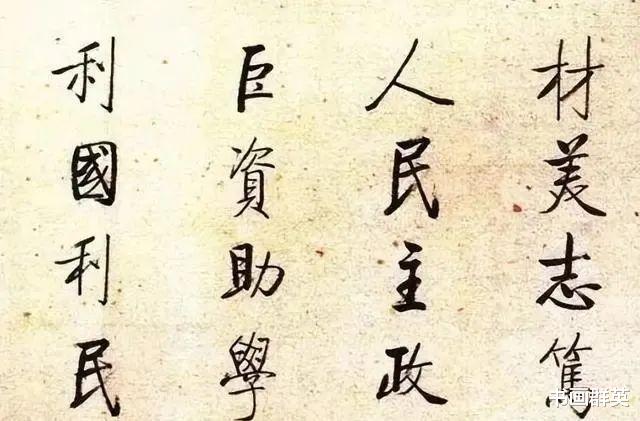 材美志篤
人民主政
巨資助學
利國利民
书画群英